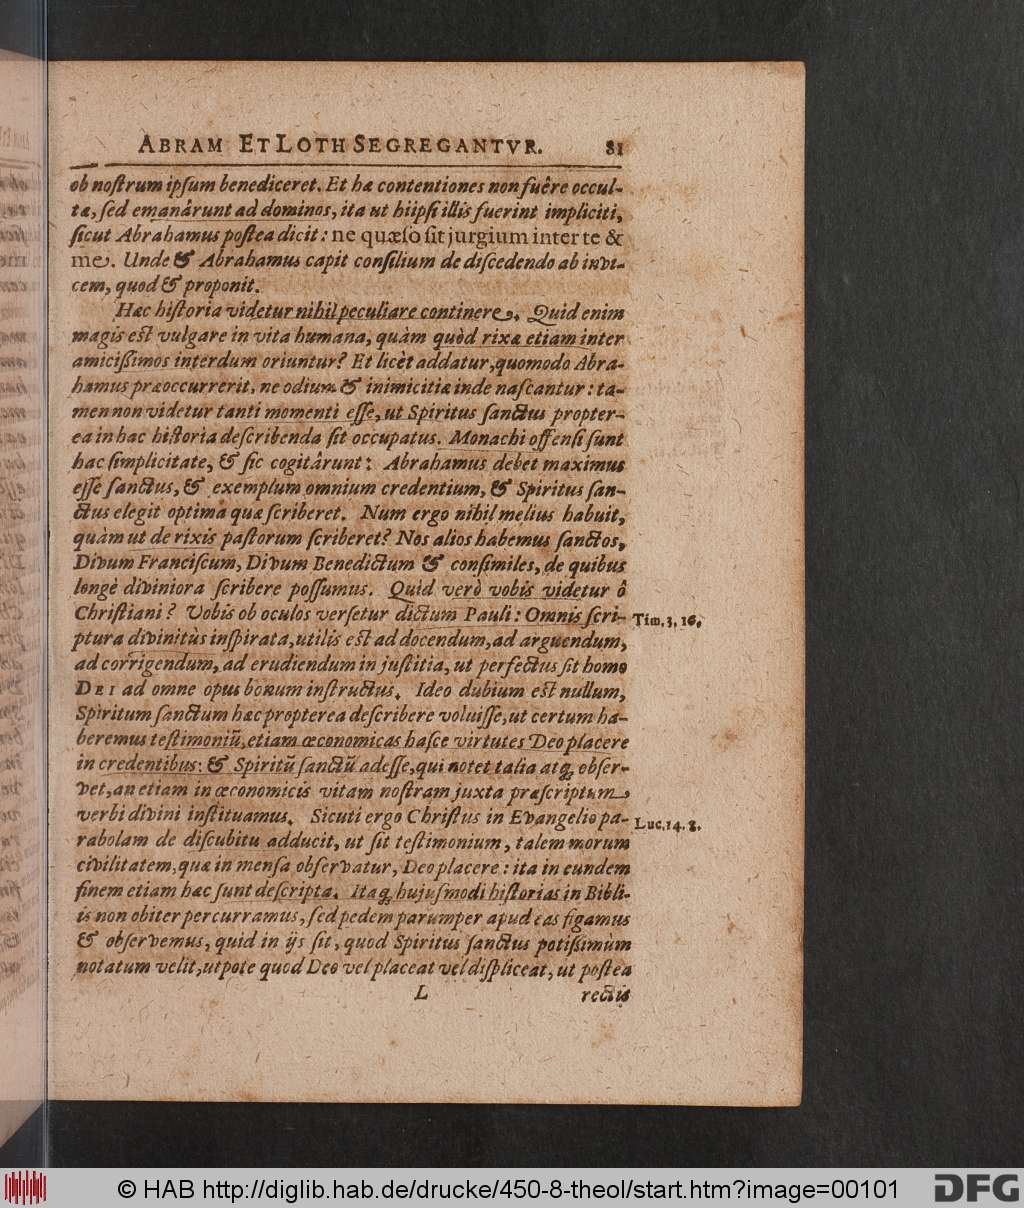 ABRAM ET LOTH SEGREGANTVR. 81
ob nostrum ipsum benediceret. Et hæ contentiones non fuêre occul-
tæ, sed emanârunt ad dominos, ita ut hi ipsi illis fuerint impliciti,
sicut Abrahamus postea dicit: ne quæso sit jurgium inter te &
me. Unde & Abrahamus capit consilium de discedendo ab invi-
cem, quod & proponit.
Hæc historia videtur nihil peculiare continere. Quid enim
magis est vulgare in vita humana, quàm quòd rixæ etiam inter
amicißimos interdum oriuntur? Et licèt addatur, quomodo Abra-
hamus præoccurrerit, ne odium & inimicitiæ inde nascantur: ta-
men non videtur tanti momenti esse, ut Spiritus sanctus propter-
ea in hac historia describenda sit occupatus. Monachi offensi sunt
hac simplicitate, & sic cogitârunt: Abrahamus debet maximus
esse sanctus, & exemplum omnium credentium, & Spiritus san-
ctus elegit optima quæ scriberet. Num ergo nihil melius habuit,
quàm ut de rixis pastorum scriberet? Nos alios habemus sanctos,
Divum Franciscum, Divum Benedictum & consimiles, de quibus
longè diviniora scribere possumus. Quid verò vobis videtur ô
Christiani? Vobis ob oculos versetur dictum Pauli: Omnis scri- Tim. 3. 16.
ptura divinitùs inspirata, utilis est ad docendum, ad arguendum,
ad corrigendum, ad erudiendum in justitia, ut perfectus sit homo
DEI ad omne opus bonum instructus. Ideo dubium est nullum,
Spiritum sanctum hæc propterea describere voluisse, ut certum ha-
beremus testimoniũ, etiam œconomicas hasce virtutes Deo placere
in credentibus: & Spiritũ sanctũ adesse, qui notet talia atq; obser-
vet, an etiam in œconomicis vitam nostram juxta præscriptum
verbi divini instituamus. Sicuti ergo Christus in Evangelio pa- Luc. 14. 8.
rabolam de discubitu adducit, ut sit testimonium, talem morum
civilitatem, quæ in mensa observatur, Deo placere: ita in eundem
finem etiam hæc sunt descripta. Itaq; hujusmodi historias in Bibli-
is non obiter percurramus, sed pedem parumper apud eas figamus
& observemus, quid in ijs sit, quod Spiritus sanctus potißimùm
notatum velit, utpote quod Deo vel placeat vel displiceat, ut postea
L rectis
© HAB http://diglib.hab.de/drucke/450-8-theol/start.htm?image=00101
DFG